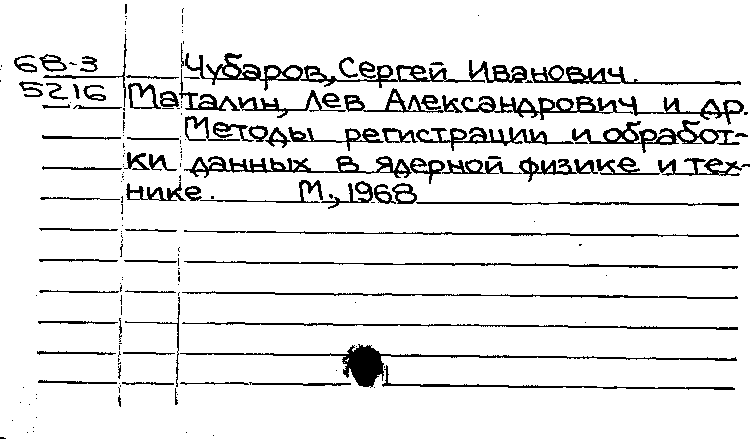 68-3 Чубаров, Сергей Иванович.
5216 Маталин, Лев Александрович и др.
Методы регистрации и обработ-
ки данных в ядерной физике и тех-
нике. М., 1968